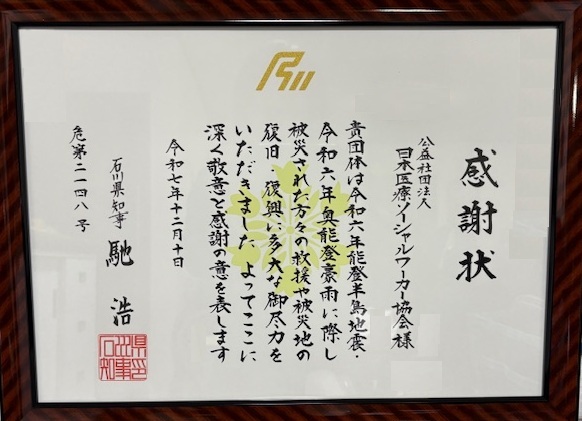 感謝状
公益社団法人
日本医療ソーシャルワーカー協会様
貴団体は令和六年能登半島地震・
令和六年奥能登豪雨に際し
被災された方々の救援や被災地の
復旧 復興に多大な御尽力を
いただきました よってここに
深く敬意と感謝の意を表します
令和七年十二月十日
石川県知事 馳 浩
石川県知事印
危第二一四八号